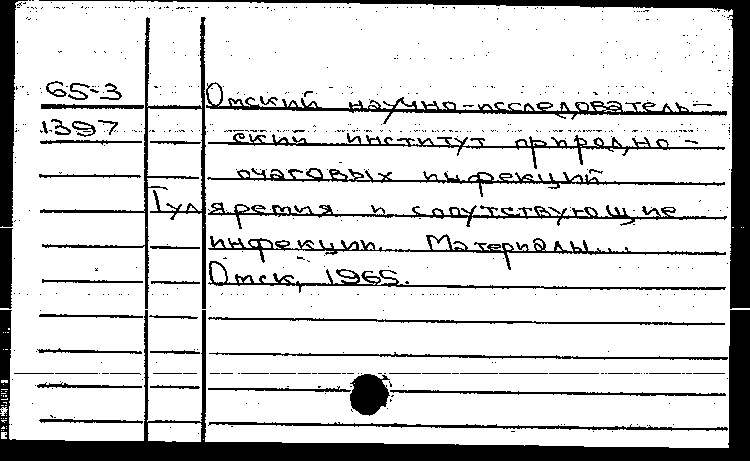 65-3
Омский научно-исследователь-
1397
ский институт природно-
очаговых инфекций.
Туляремия и сопутствующие
инфекции. Материалы...
Омск, 1965.